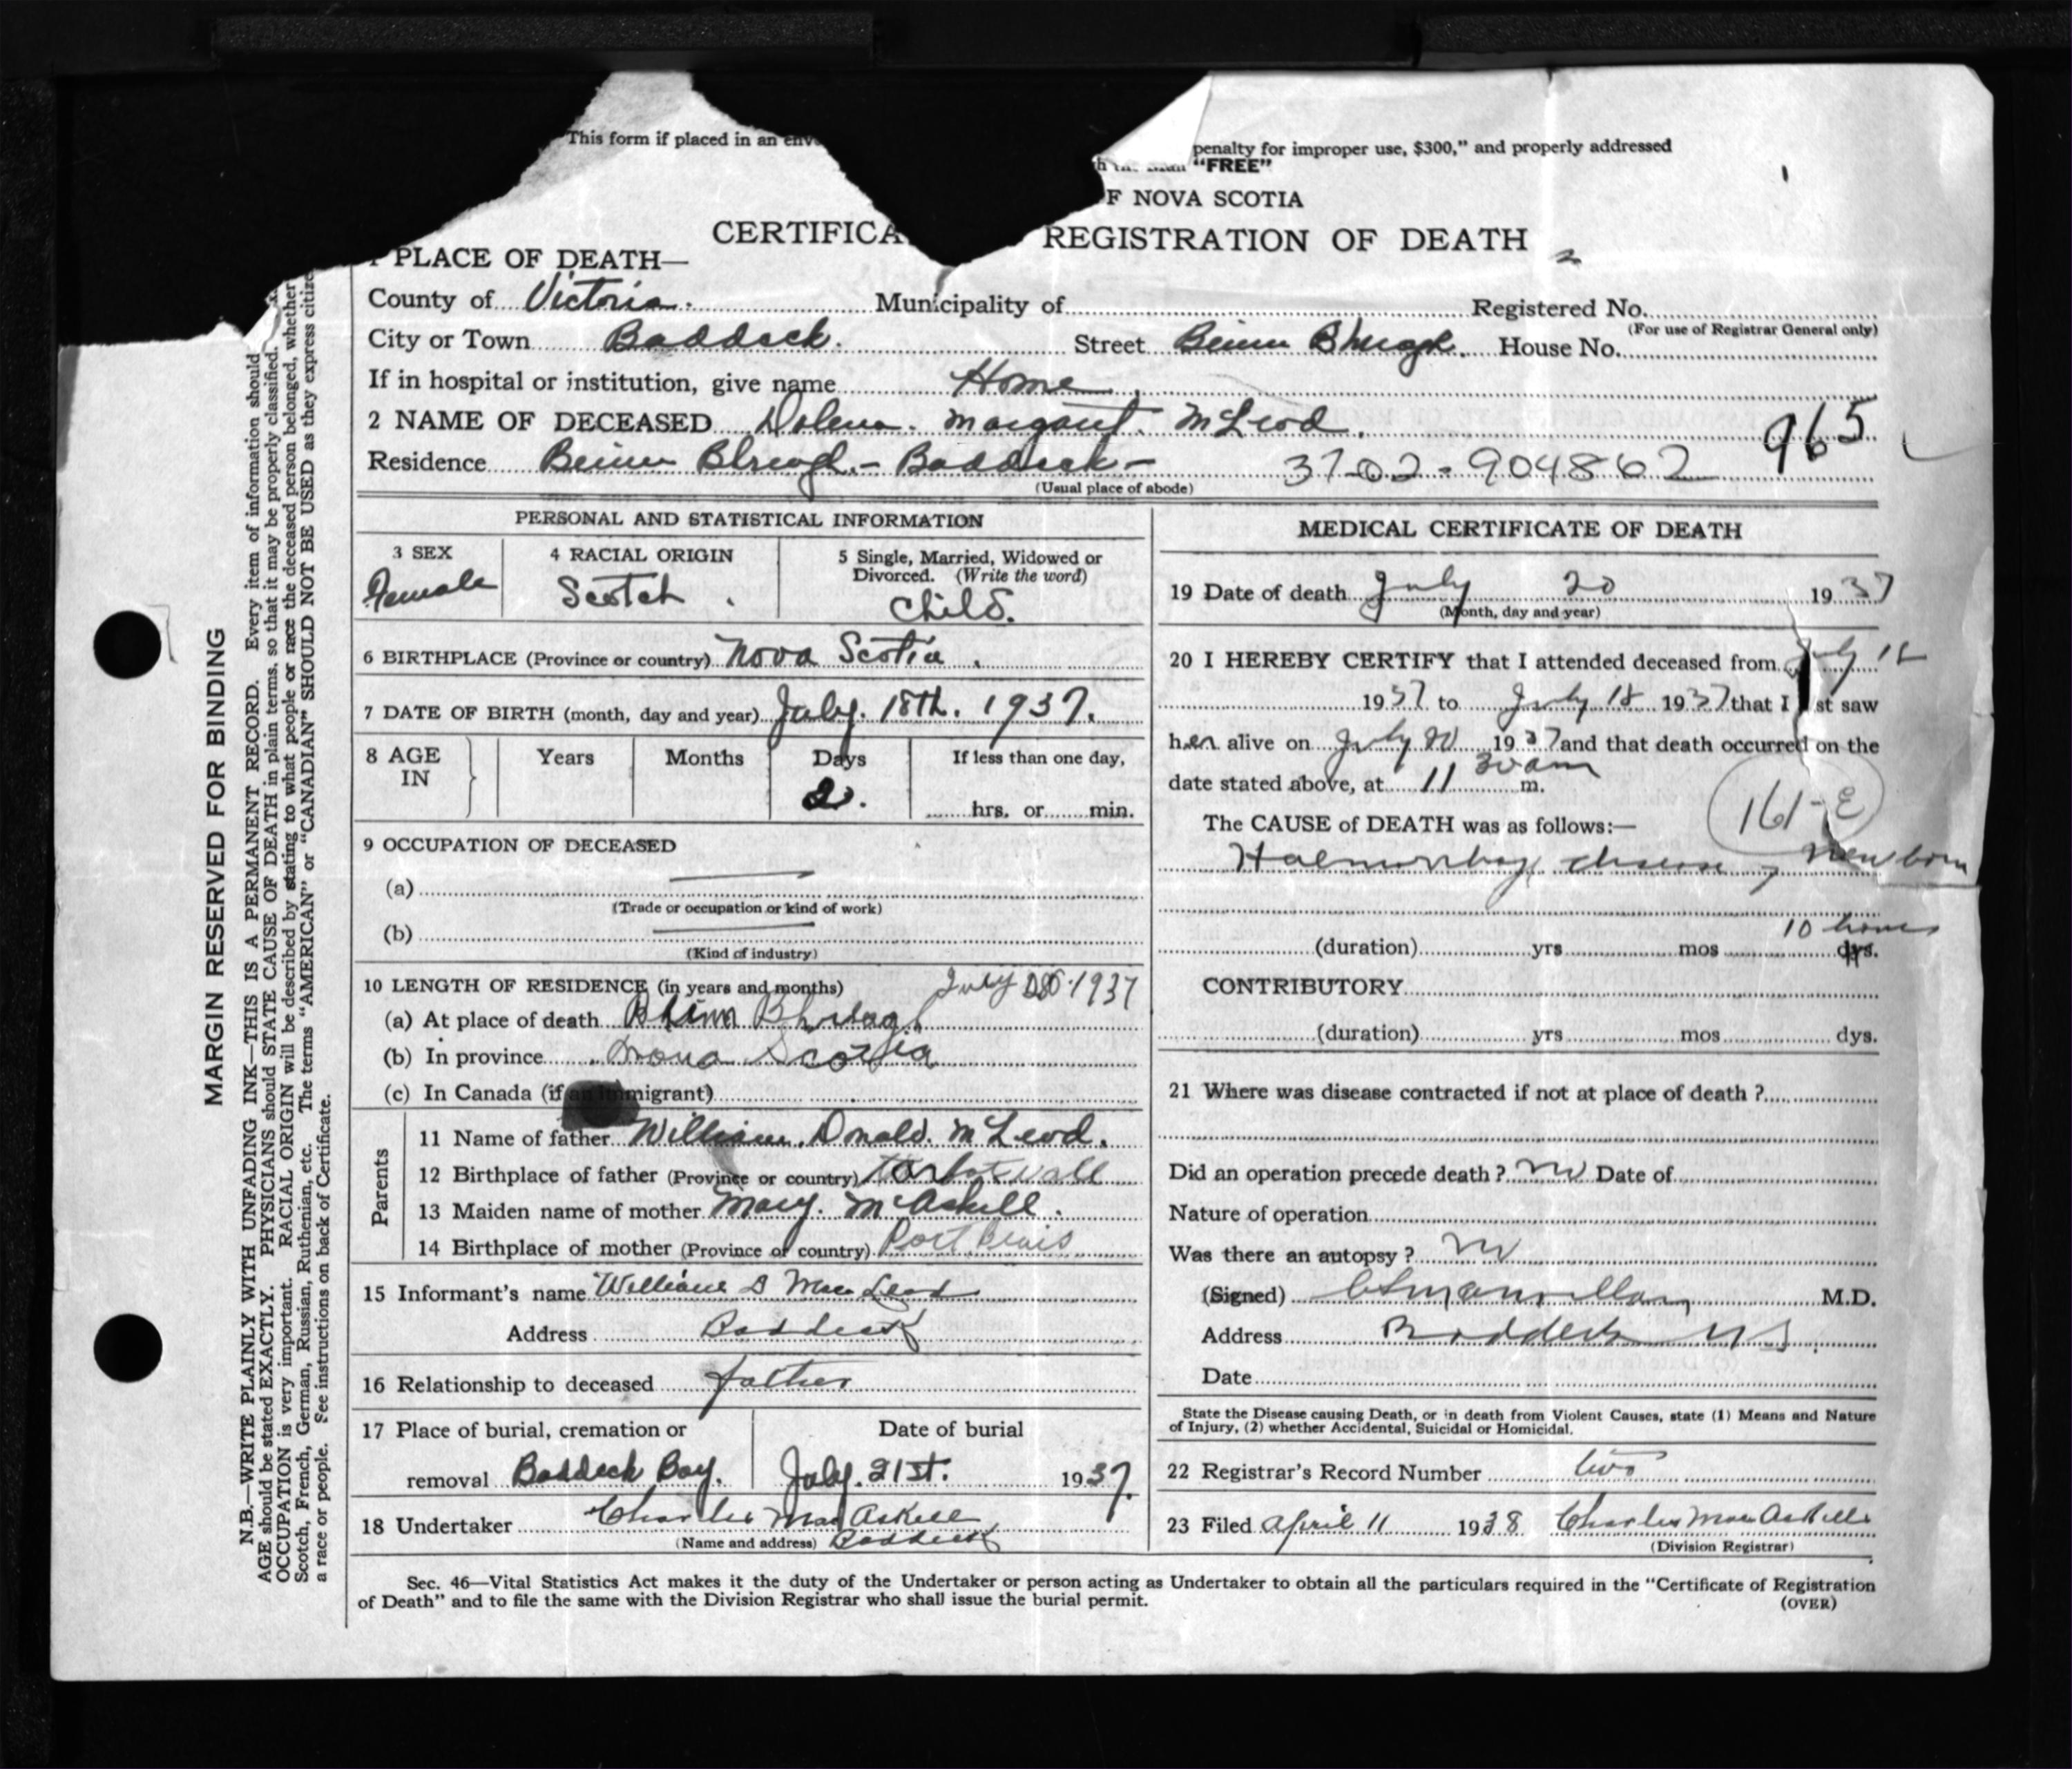 This form if placed in an
penalty for improper use, $300," and properly addressed
"FREE"
F NOVA SCOTIA
CERTIFICA REGISTRATION OF DEATH
PLACE OF DEATH—
County of Victoria. Municipality of Registered No.
(For use of Registrar General only)
City or Town Baddeck. Street Beinn Bhreagh. House No.
If in hospital or institution, give name Home
2 NAME OF DECEASED Dolena. Margaret. McLeod. 965
Residence Beinn Bhreagh - Baddeck - 3702-904862
(Usual place of abode)
PERSONAL AND STATISTICAL INFORMATION
3 SEX Female
4 RACIAL ORIGIN Scotch.
5 Single, Married, Widowed or
Divorced. (Write the word)
Child.
6 BIRTHPLACE (Province or country) Nova Scotia.
7 DATE OF BIRTH (month, day and year) July. 18th. 1937.
8 AGE IN Years Months Days If less than one day,
2. hrs. or min.
9 OCCUPATION OF DECEASED
(a)
(Trade or occupation or kind of work)
(b)
(Kind of industry)
10 LENGTH OF RESIDENCE (in years and months) July 1937
(a) At place of death Bhreagh
(b) In province Nova Scotia
(c) In Canada (if an immigrant)
Parents
11 Name of father William. Donald. McLeod.
12 Birthplace of father (Province or country)
13 Maiden name of mother Mary. McAskill.
14 Birthplace of mother (Province or country) Port Bevis
15 Informant's name William D MacLeod
Address Baddeck
16 Relationship to deceased father
17 Place of burial, cremation or
removal Baddeck Bay.
Date of burial
July. 21st. 1937.
18 Undertaker Charles MacAskill
(Name and address) Baddeck
MEDICAL CERTIFICATE OF DEATH
19 Date of death July 20 1937
(Month, day and year)
20 I HEREBY CERTIFY that I attended deceased from July 18
1937 to July 18 1937 that I last saw
her alive on July 20 1937 and that death occurred on the
date stated above, at 11 30 am m.
161-E
The CAUSE of DEATH was as follows:—
Haemorrhag disease, newborn
10 hours
(duration) yrs mos dys.
CONTRIBUTORY
(duration) yrs mos dys.
21 Where was disease contracted if not at place of death ?
Did an operation precede death ? no Date of
Nature of operation
Was there an autopsy ? no
(Signed) M.D.
Address Baddeck NS
Date
State the Disease causing Death, or in death from Violent Causes, state (1) Means and Nature
of Injury, (2) whether Accidental, Suicidal or Homicidal.
22 Registrar's Record Number two
23 Filed April 11 1938 Charles MacAskill
(Division Registrar)
Sec. 46—Vital Statistics Act makes it the duty of the Undertaker or person acting as Undertaker to obtain all the particulars required in the "Certificate of Registration
of Death" and to file the same with the Division Registrar who shall issue the burial permit.
(OVER)
MARGIN RESERVED FOR BINDING
N.B.—WRITE PLAINLY WITH UNFADING INK—THIS IS A PERMANENT RECORD. Every item of information should
AGE should be stated EXACTLY. PHYSICIANS should STATE CAUSE OF DEATH in plain terms, so that it may be properly classified.
OCCUPATION is very important. RACIAL ORIGIN will be described by stating to what people or race the deceased person belonged, whether
Scotch, French, German, Russian, Ruthenian, etc. The terms "AMERICAN" or "CANADIAN" SHOULD NOT BE USED as they express citize
a race or people. See instructions on back of Certificate.